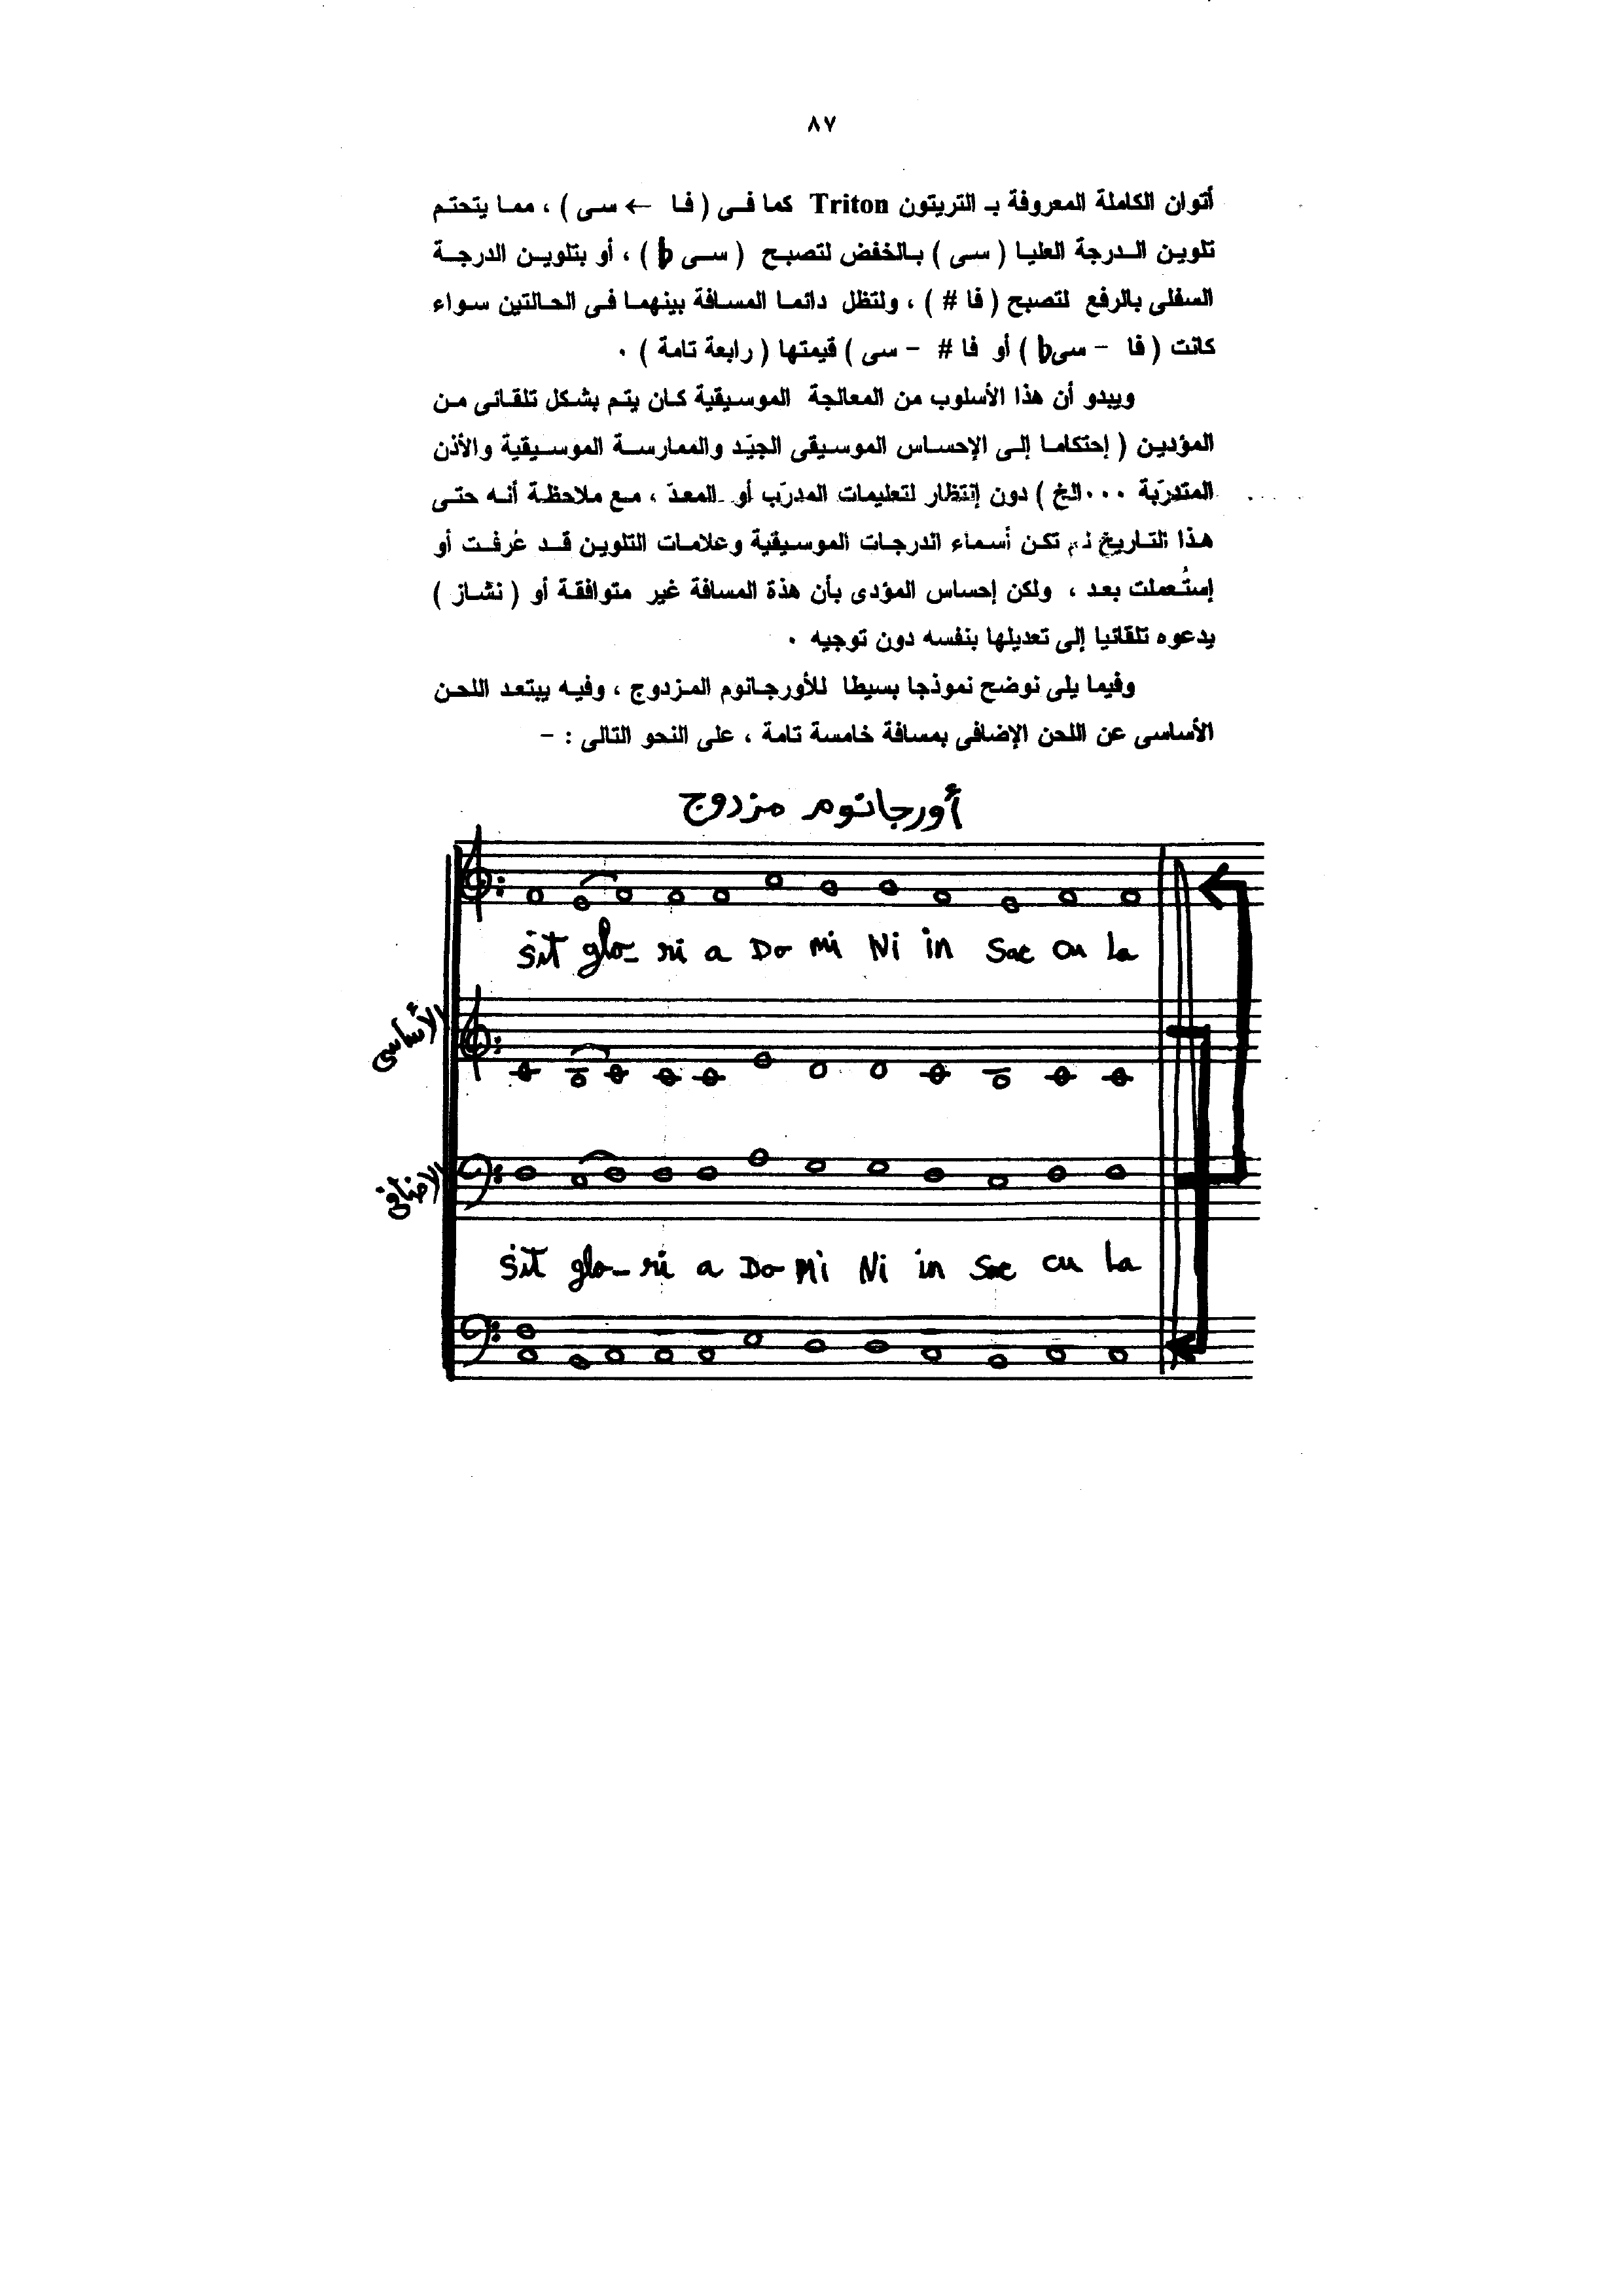 ٨٧
أتوان الكاملة المعروفة بـ التريتون Triton كما فى ( فا ← سى ) ، مما يتحتم
تلوين الدرجة العليا ( سى ) بالخفض لتصبح ( سى b ) ، أو بتلوين الدرجة
السفلى بالرفع لتصبح ( فا # ) ، ولتظل دائما المسافة بينهما فى الحالتين سواء
كانت ( فا - سىb ) أو فا # - سى ) قيمتها ( رابعة تامة ) ٠
ويبدو أن هذا الأسلوب من المعالجة الموسيقية كان يتم بشكل تلقائى من
المؤدين ( إحتكاما إلى الإحساس الموسيقى الجيّد والممارسة الموسيقية والأذن
المتدرّبة ٠٠٠ الخ ) دون إنتظار لتعليمات المدرّب أو المعدّ ، مع ملاحظة أنه حتى
هذا التاريخ لم تكن أسماء الدرجات الموسيقية وعلامات التلوين قد عُرفت أو
إستُعملت بعد ، ولكن إحساس المؤدى بأن هذة المسافة غير متوافقة أو ( نشّاز )
يدعوه تلقائيا إلى تعديلها بنفسه دون توجيه ٠
وفيما يلى نوضح نموذجا بسيطا للأورجانوم المزدوج ، وفيه يبتعد اللحن
الأساسى عن اللحن الإضافى بمسافة خامسة تامة ، على النحو التالى : -
أورجانوم مزدوج
Sit glo- ri a Do mi Ni in Sae cu la
الأساسى
الاضافى
Sit glo- ri a Do Mi Ni in Sae cu la